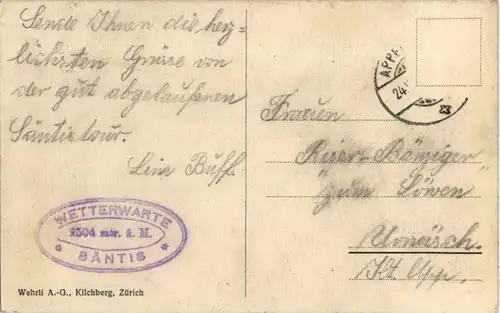 Sende Ihnen die herz=
lichsten Grüsse von
der gut abgelaufenen
Säntistour.
Lina Buff.
WETTERWARTE
2504 mtr. ü. M.
SÄNTIS
Wehrli A.-G., Kilchberg, Zürich
APPE
24.
Frauen
"zum Löwen"
Urnäsch.
Kt. App.